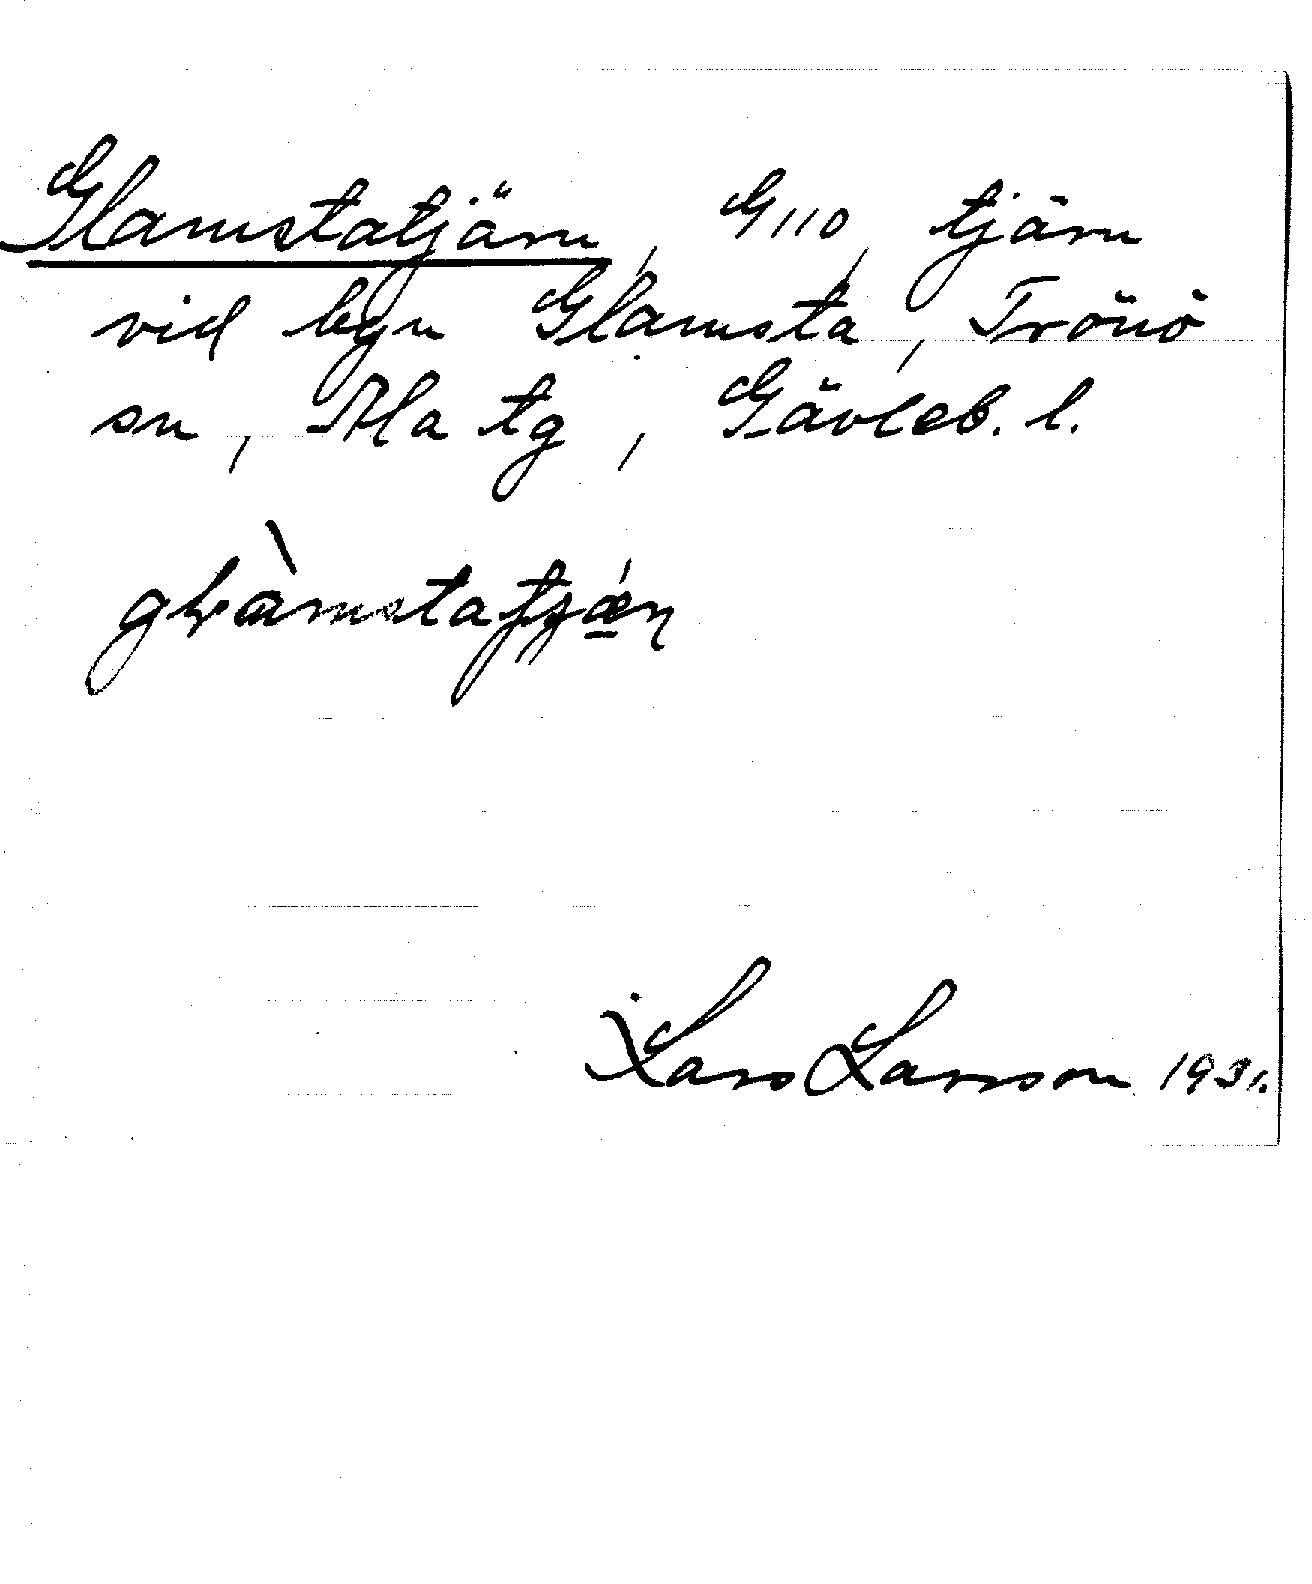 Glamstatjärn, G110, tjärn
vid byn Glamsta, Trönö
sn, Ala tg, Gävleb. l.
Lars Larsson 1931.